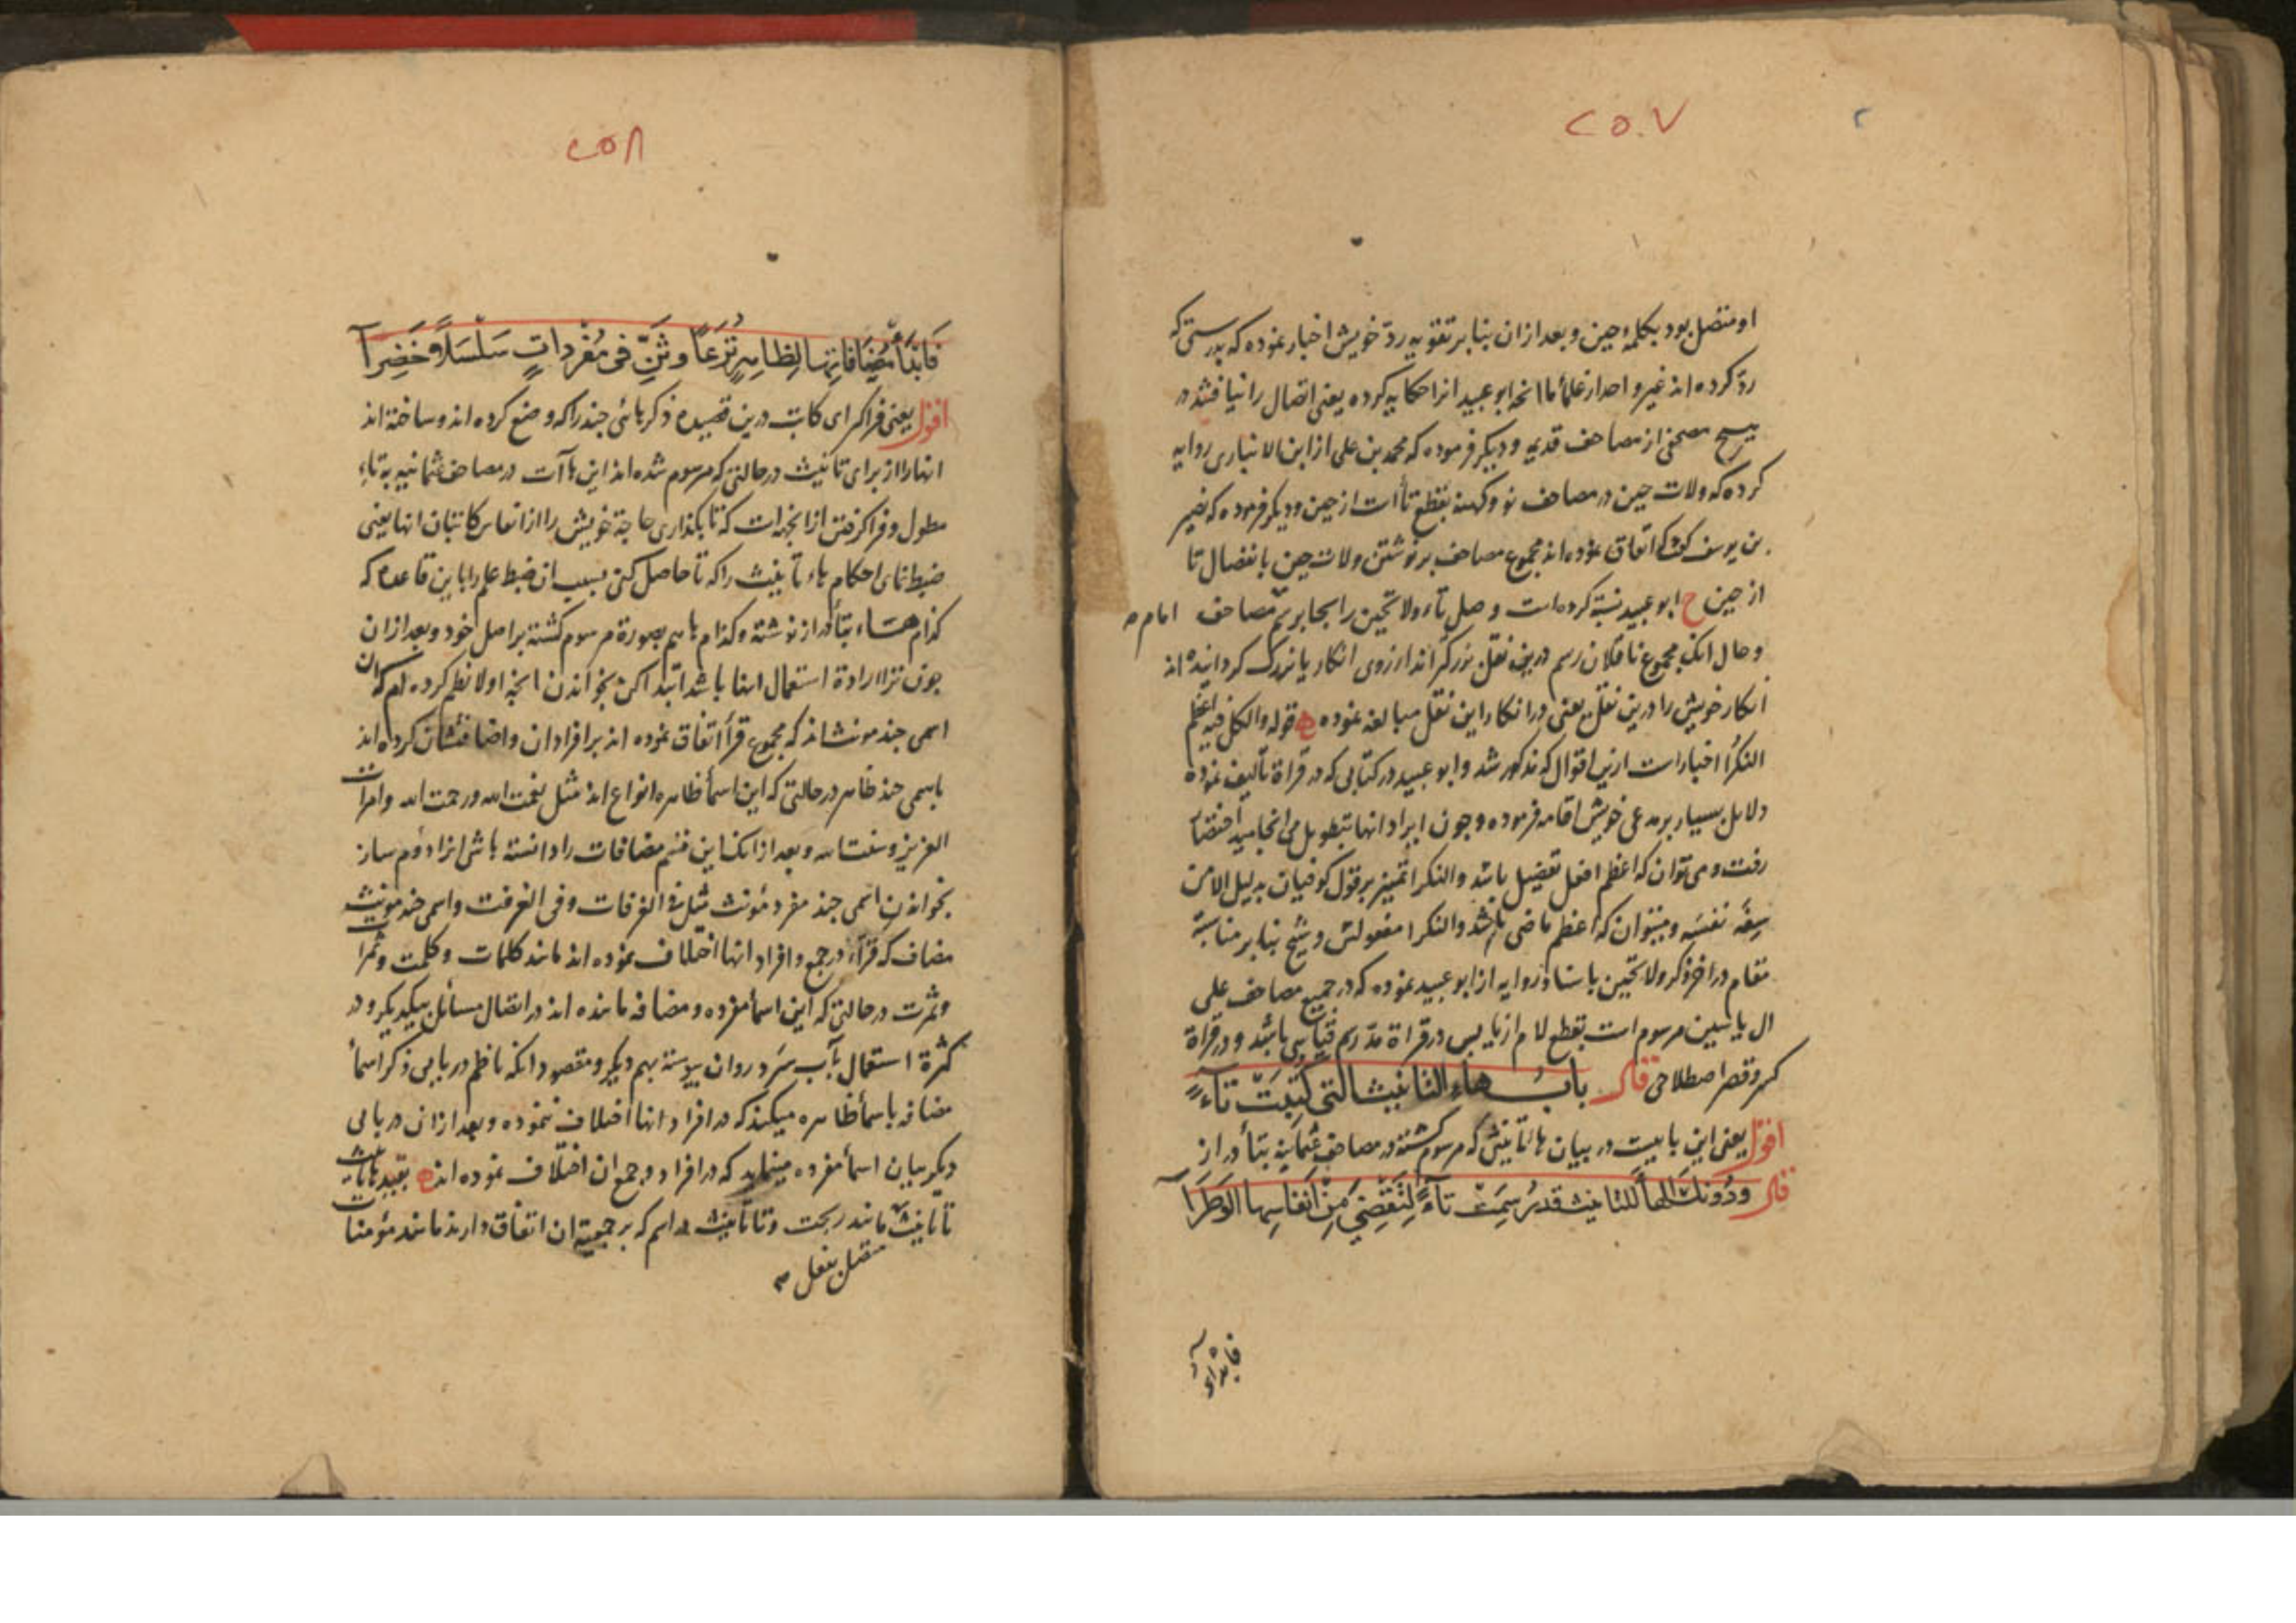 ۲۵۰۷
او متصل بود بکلمهٔ حین و بعد از ان بنا بر تقویه ردّ خویش اخبار نموده که بدرستی که
ردّ کرده اند غیر واحد از علمأ ما انچه ابو عبید انرا حکایه کرده یعنی اتصال را نیافتند در
هیچ مصحفی از مصاحف قدیم و دیکر فرموده که محمد بن علی از ابن الانباری روایه
کرده که ولات حین در مصاحف نو و کهنه بقطع تأ است از حین و دیکر فرموده که نصیر
بن یوسف کفت که اتفاق نموده اند مجموع مصاحف بر نوشتن ولات حین بانفصال تا
از حین ح ابو عبید نسبة کرده است وصل تاء ولا تحین را بجابر بتم مصاحف امام
و حال انک مجموع ناقلان رسم درین نقل بزرک کرده اند از روی انکار یا بزرک کردانیده اند
انکار خویش را درین نقل یعنی در انکار این نقل مبالغه نموده قوله والکل فیه اعظم
النکرا اخبار است ازین اقوال که مذکور شد و ابو عبید در کتابی که در قراة تألیف نموده
دلایل بسیار بر مدعی خویش اقامه فرموده و چون ایراد انها بتطویل می انجامید اختصار
رفت و می توان که اعظم افعل تفضیل باشد والنکرا تمییز بر قول کوفیان بدلیل الا من
سفه نفسه و میتوان که اعظم ماضی باشد والنکرا مفعولش و شیخ بنا بر مناسبة
مقام در اخر ذکر ولا تحین باسناد روایه از ابو عبید نموده که در جمیع مصاحف علی
ال یاسین مرسوم است بقطع لام از یا پس در قراة مدّ رسم قیاسی باشد و در قراة
کسر و قصر اصطلاحی قال باب هاء التانیث التی کتبت تاء
اقول یعنی این بابیت در بیان هاء تانیثی که مرسوم کشته در مصاحف عثمانیه بتأ دراز
قال ودونک الهاء للتانیث قد رسمت تاء لتقضی من انفاسها الوطرا
فابدأ
۲۵۰۸
فابدأ مضافاتها لظاهر ترعا وثن فی مفردات سلسلا خضرا
اقول یعنی فرا کیر ای کاتب درین قصیده ذکر هائی چند را که وضع کرده اند و ساخته اند
انها را از برای تانیث در حالتی که مرسوم شده اند این هاآت در مصاحف عثمانیه به تاء
مطول و فرا کرفتن از انجهة است که تا بکذاری حاجة خویش را از انفاس کاتبان انها یعنی
ضبط نمای احکام هاء تأنیث را که تا حاصل کنی بسبب ان ضبط علم را باین قاعده که
کدام هاء بتأ دراز نوشته و کدام هم بصورة مرسوم کشته بر اصل خود و بعد از ان
چون ترا ارادة استعمال اینها باشد ابتدا کن بخواندن انچه اولا نظم کرده ام که ان
اسمی چند مونث اند که مجموع قرأ اتفاق نموده اند بر افراد ان و اضافتشان کرده اند
باسمی چند ظاهر در حالتی که این اسمأ ظاهره انواع اند مثل نعمت الله و رحمت الله و امرات
العزیز و سنت الله و بعد از انک این قسم مضافات را دانسته باشی انرا دوم ساز
بخواندن اسمی چند مفرد مونث مثل فی الغرفات و فی الغرفت و اسمی چند مونث
مضاف که قرّاء در جمع و افراد انها اختلاف نموده اند مانند کلمات و کلمت و ثمرات
و ثمرت در حالتی که این اسمأ مفرده و مضافه مانند اند در اتصال مسائل بیکدیکر و در
کثرة استعمال بآب سرد روان پیوسته بهم دیکر و مقصود انکه ناظم در بابی ذکر اسمأ
مضافه باسمأ ظاهره میکند که در افراد انها اختلاف ننموده و بعد از ان در بابی
دیکر بیان اسمأ مفرده مینماید که در افراد و جمع ان اختلاف نموده اند بقید هاء تانیث
تأ تانیث مانند ربحت و تا تانیث در اسم که بر جمعیة ان اتفاق دارند مانند مومنات
متصل بفعل